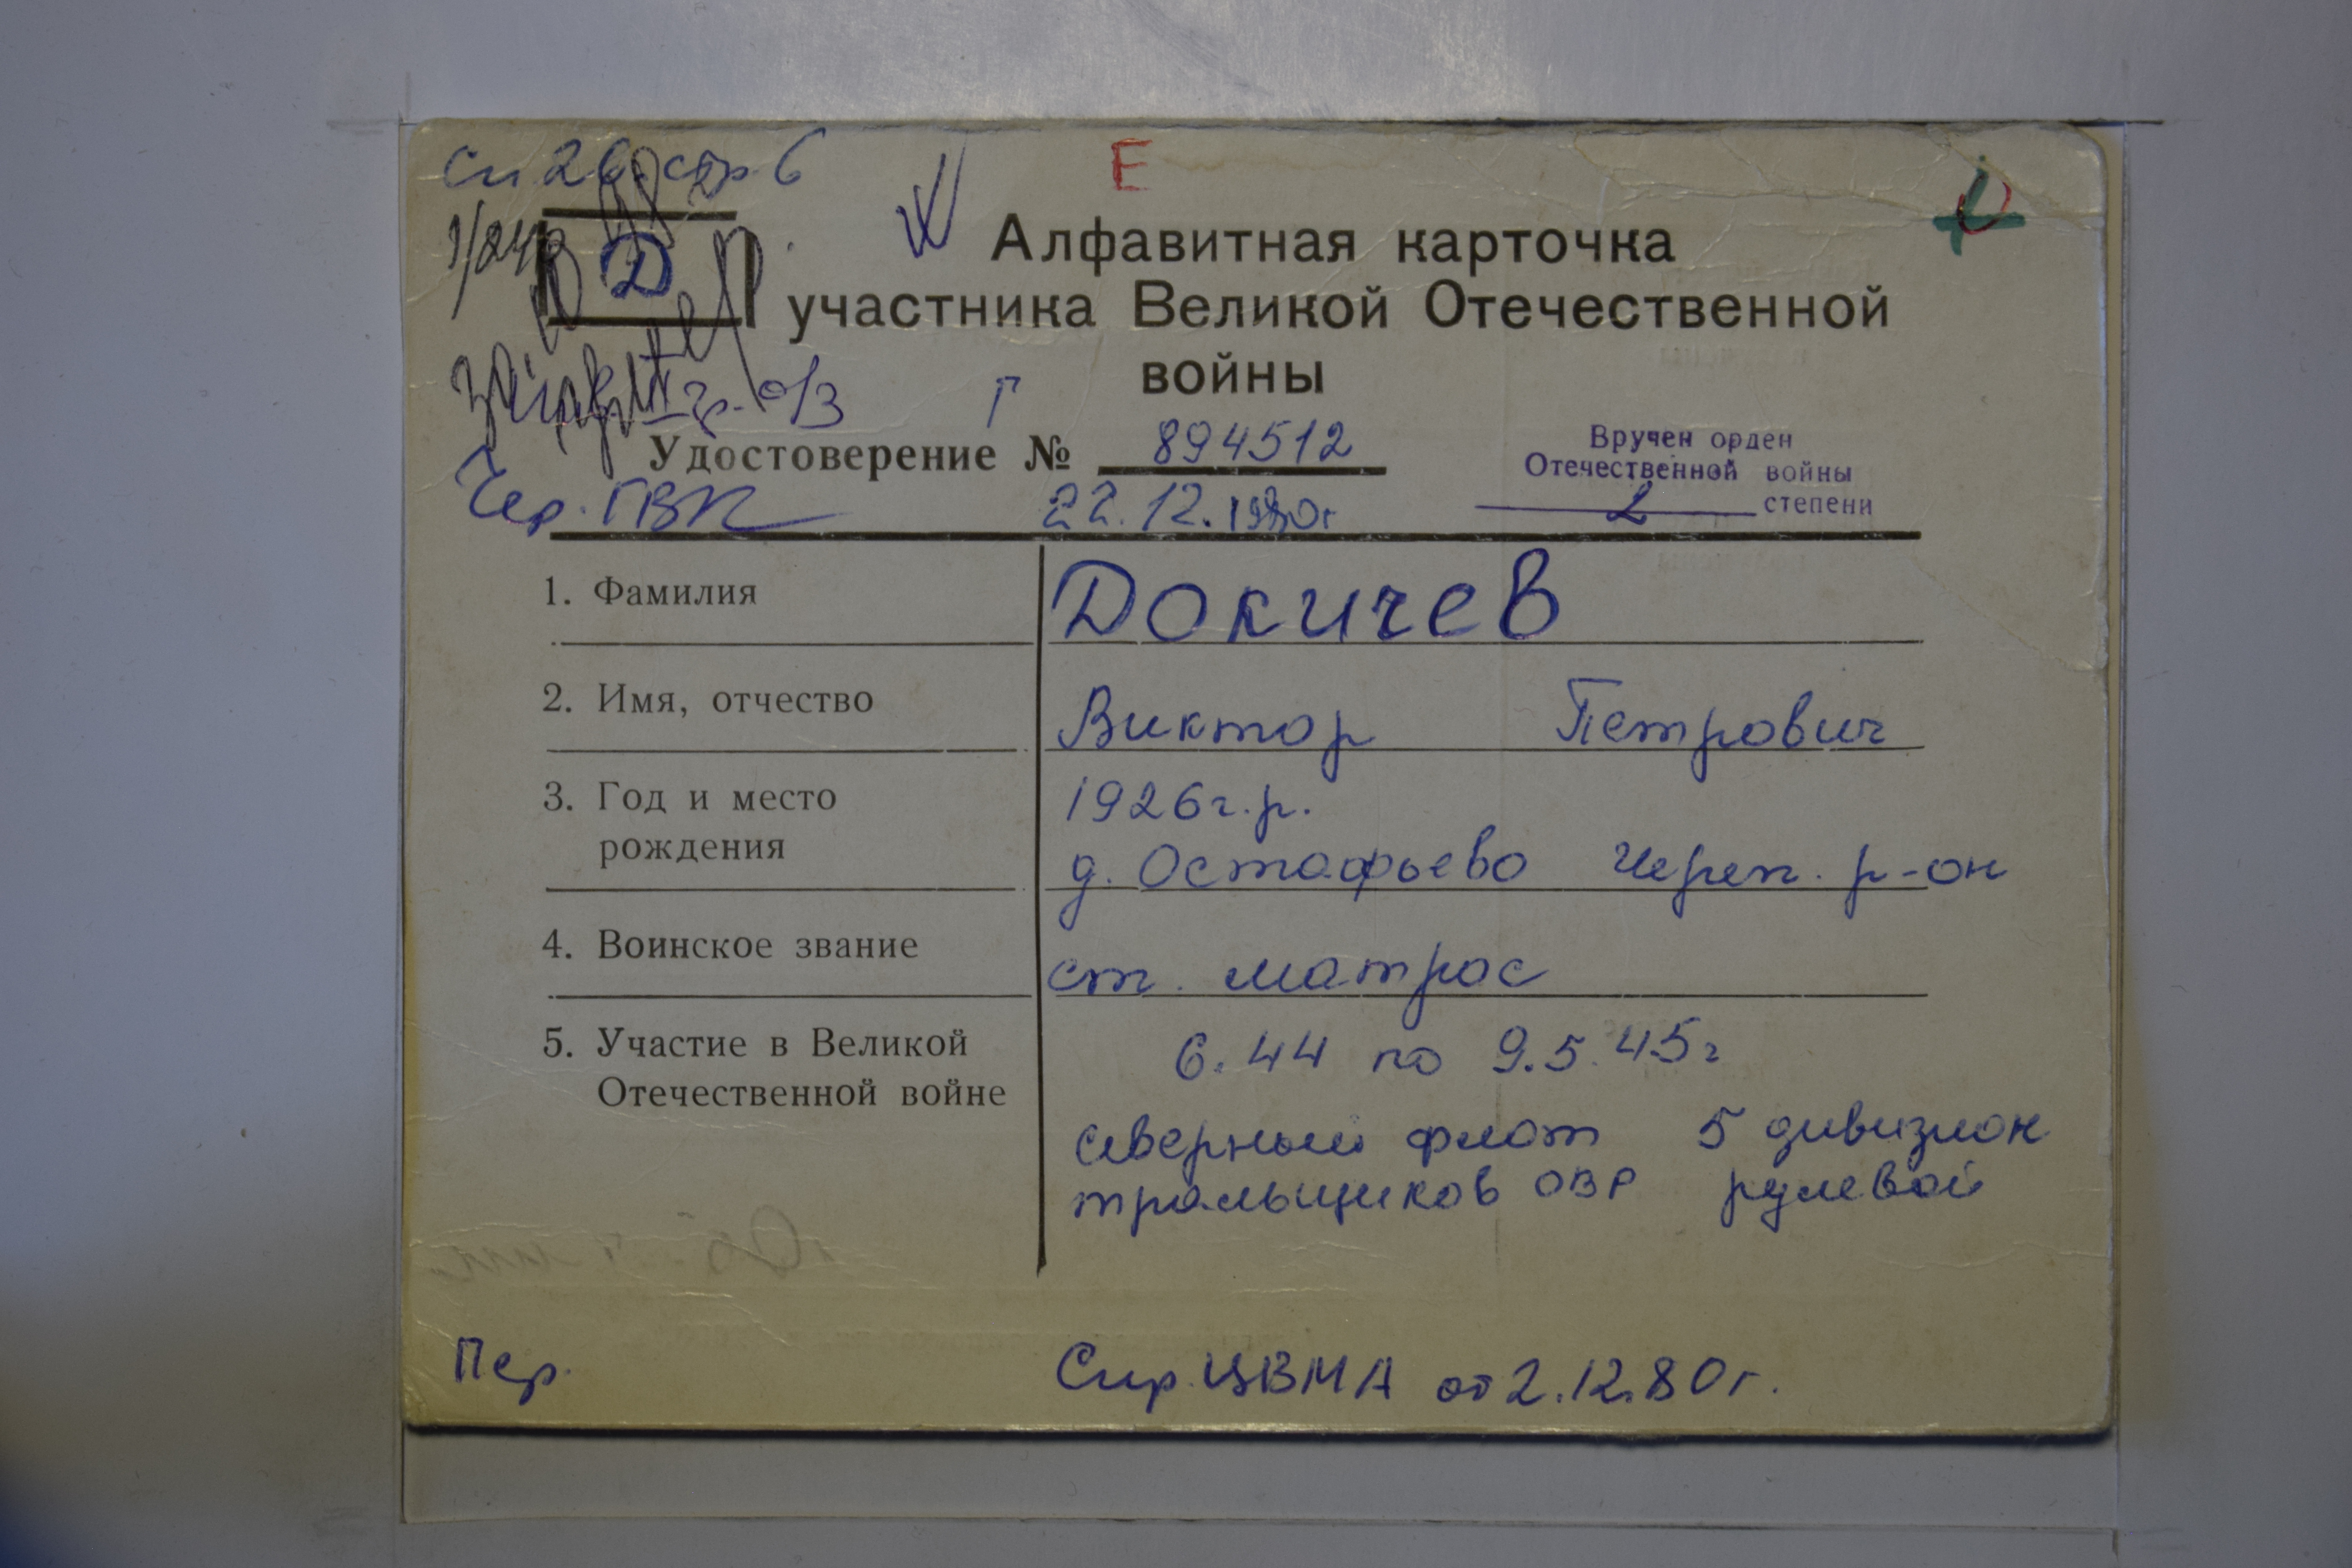 Сп. 26 стр. 6
Е
Д
Алфавитная карточка
участника Великой Отечественной
войны
II гр. о/з
Г
Удостоверение № 894512
Вручен орден
Отечественной войны
2 степени
Чер. ГВК
22.12.1980г
1. Фамилия
Докичев
2. Имя, отчество
Виктор Петрович
3. Год и место
рождения
1926г.р.
д. Остафьево Череп. р-он
4. Воинское звание
ст. матрос
5. Участие в Великой
Отечественной войне
6.44 по 9.5.45г
северный флот 5 дивизион
тральщиков ОВР рулевой
Пер.
Спр. ЦВМА от 2.12.80г.